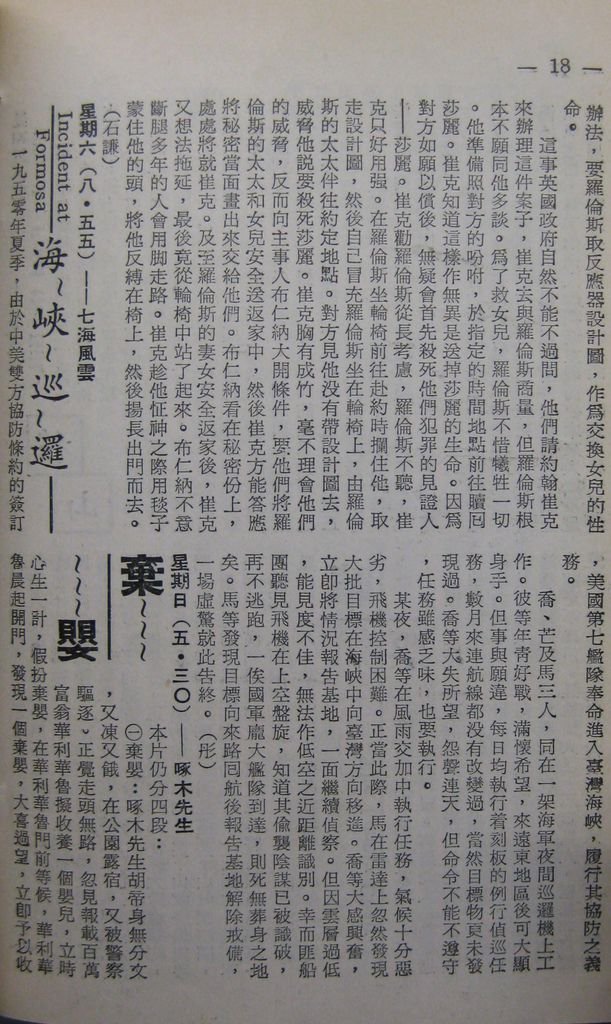 — 18 —
辦法，要羅倫斯取反應器設計圖，作爲交換女兒的性
命。
這事英國政府自然不能不過問，他們請約翰崔克
來辦理這件案子，崔克去與羅倫斯商量，但羅倫斯根
本不願同他多談。爲了救女兒，羅倫斯不惜犧牲一切
。他準備照對方的吩咐，於指定的時間地點前往贖回
莎麗。崔克知道這樣作無異是送掉莎麗的生命。因爲
對方如願以償後，無疑會首先殺死他們犯罪的見證人
——莎麗。崔克勸羅倫斯從長考慮，羅倫斯不聽，崔
克只好用強。在羅倫斯坐輪椅前往赴約時攔住他，取
走設計圖，然後自己冒充羅倫斯坐在輪椅上，由羅倫
斯的太太伴往約定地點。對方見他沒有帶設計圖去，
威脅他説要殺死莎麗。崔克胸有成竹，毫不理會他們
的威脅，反而向主事人布仁納大開條件，要他們將羅
倫斯的太太和女兒安全送返家中，然後崔克方能答應
將秘密當面畫出來交給他們。布仁納看在秘密份上，
處處將就崔克。及至羅倫斯的妻女安全返家後，崔克
又想法拖延，最後竟從輪椅中站了起來。布仁納不意
斷腿多年的人會用脚走路。崔克趁他怔神之際用毯子
蒙住他的頭，將他反縛在椅上，然後揚長出門而去。
（石謙）
星期六（八・五五）——七海風雲
Incident at
Formosa
海~峽~巡~邏
一九五零年夏季，由於中美雙方協防條約的簽訂
，美國第七艦隊奉命進入臺灣海峽，履行其協防之義
務。
喬、芒及馬三人，同在一架海軍夜間巡邏機上工
作。彼等年青好戰，滿懷希望，來遠東地區後可大顯
身手。但事與願違，每日均執行着刻板的例行偵巡任
務，數月來連航線都没有改變過，當然目標物更未發
現過。喬等大失所望，怨聲連天，但命令不能不遵守
，任務雖感乏味，也要執行。
某夜，喬等在風雨交加中執行任務，氣候十分惡
劣，飛機控制困難。正當此際，馬在雷達上忽然發現
大批目標在海峽中向臺灣方向移進。喬等大感興奮，
立即將情況報告基地，一面繼續偵察。但因雲層過低
，能見度不佳，無法作低空之近距離識別。幸而匪船
團聽見飛機在上空盤旋，知道其偷襲陰謀已被識破，
再不逃跑，一俟國軍龐大艦隊到達，則死無葬身之地
矣。馬等發現目標向來路囘航後報告基地解除戒備，
一場虛驚就此告終。（彤）
星期日（五・三〇）——啄木先生
棄~~~
~~~嬰
本片仍分四段：
㊀棄嬰：啄木先生胡帝身無分文
，又凍又餓，在公園露宿，又被警察
驅逐。正覺走頭無路，忽見報載百萬
富翁華利華魯擬收養一個嬰兒，立時
心生一計，假扮棄嬰，在華利華魯門前等候，華利華
魯晨起開門，發現一個棄嬰，大喜過望，立即予以收